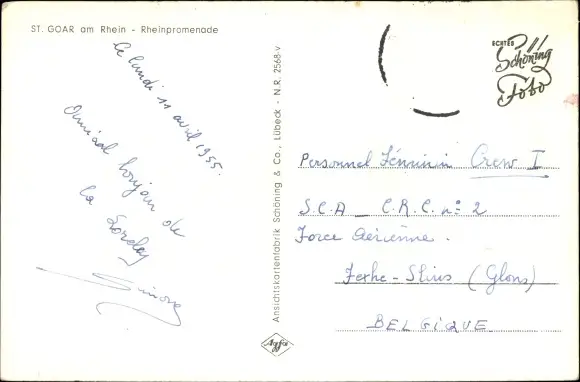 ST. GOAR am Rhein - Rheinpromenade
Ce lundi 11 avril 1955.
Amical bonjour de
la Loreley
Simone
Ansichtskartenfabrik Schöning & Co., Lübeck - N.R. 2568-v
Agfa
ECHTES
Schöning
Foto
Personnel Féminin Crew I
S.C.A _ C.R.C. n° 2
Force Aérienne.
Fexhe-Slins (Glons)
BELGIQUE